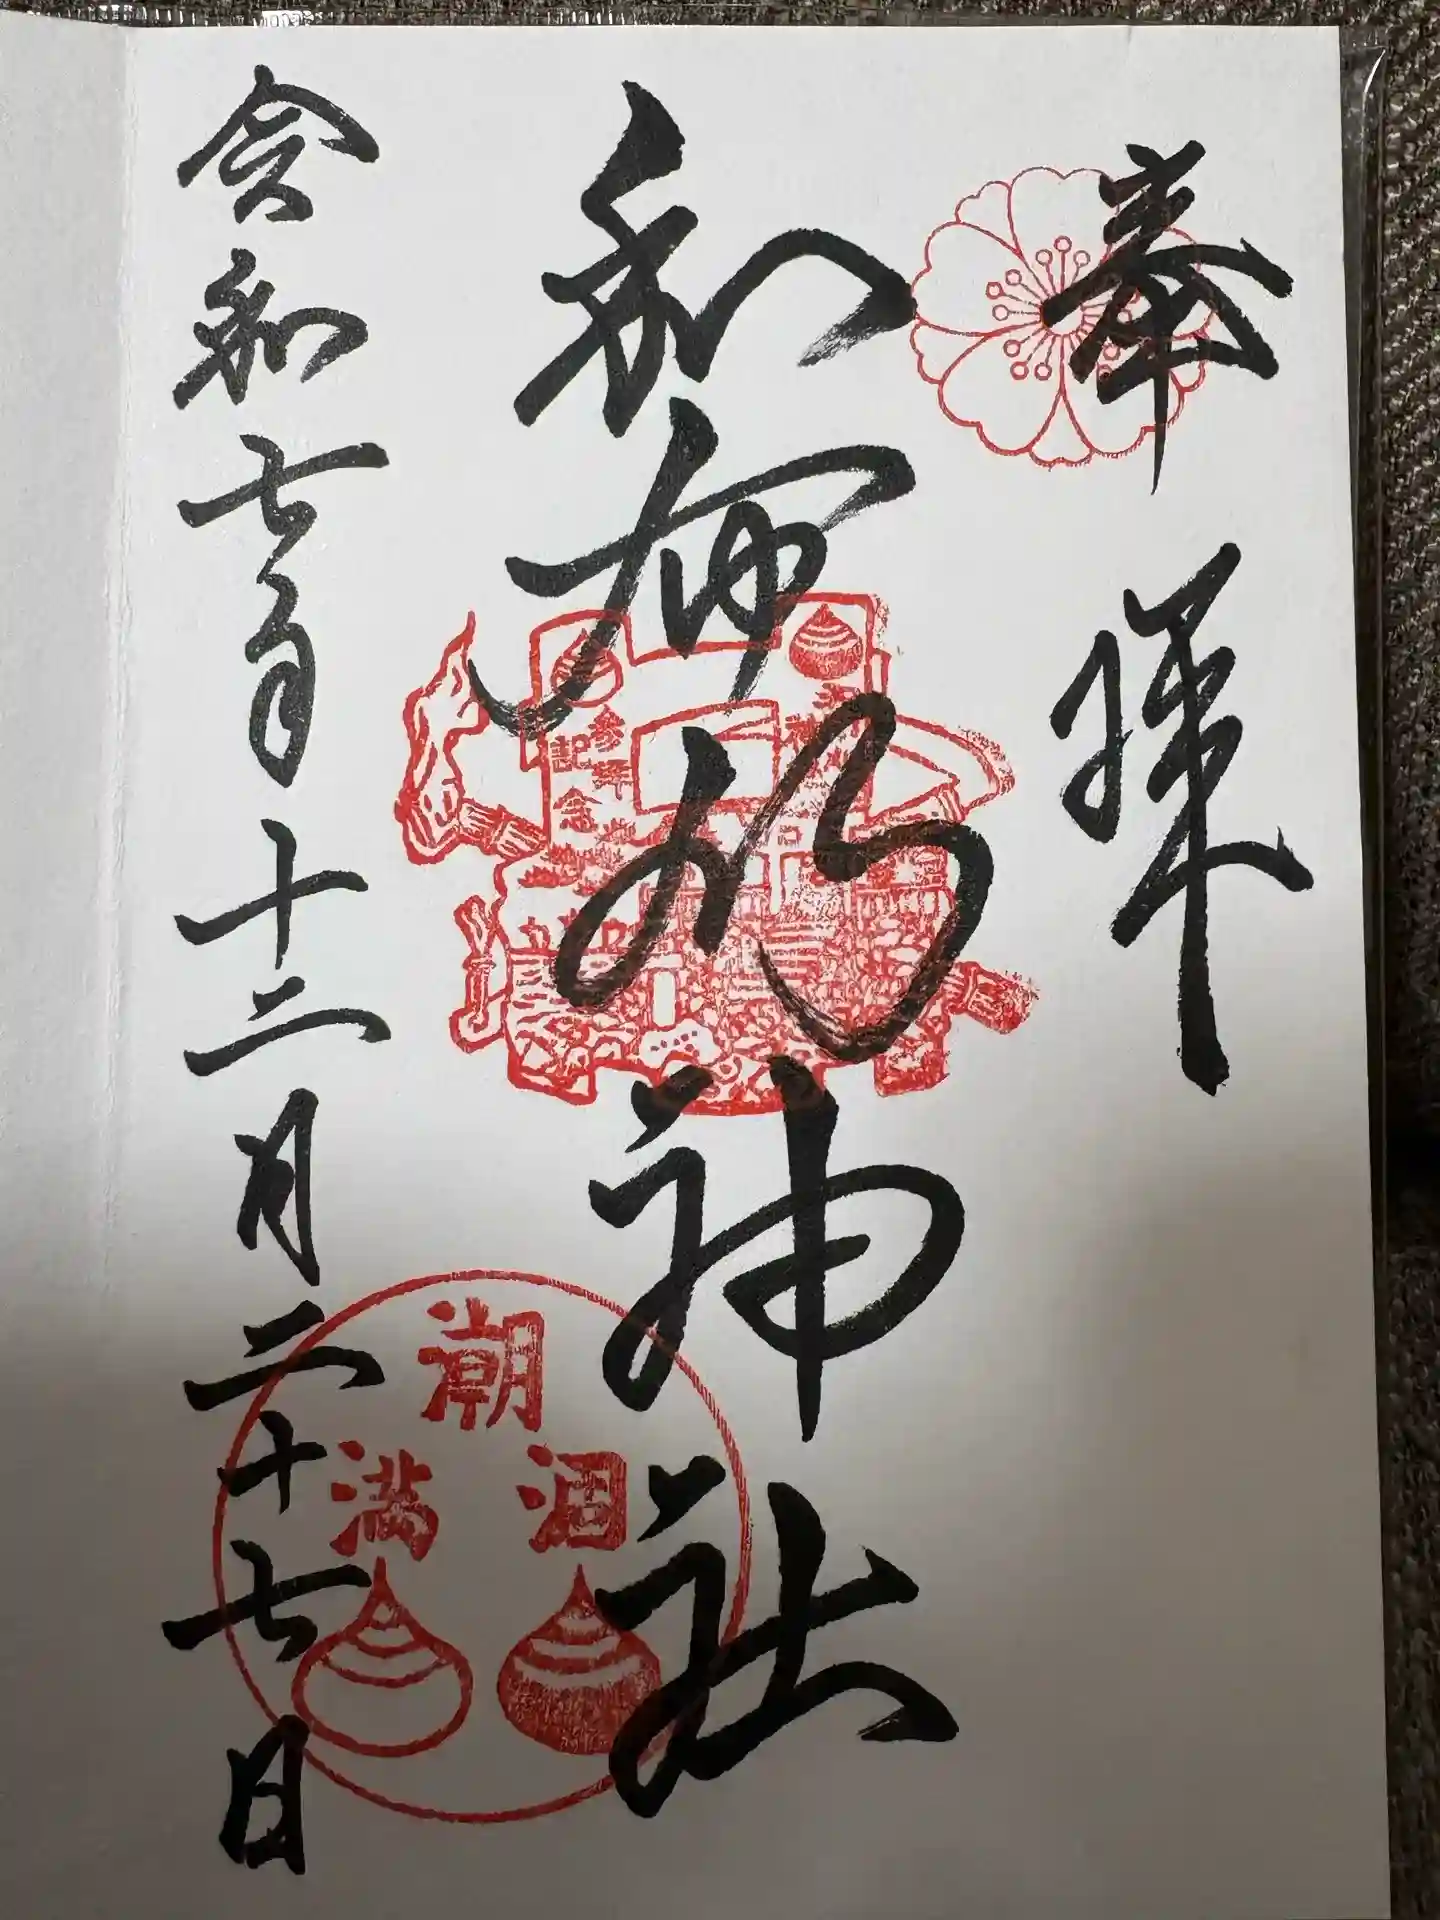 奉拝
和布刈神社
参拝
記念
潮
満 涸
令和七年十二月二十七日